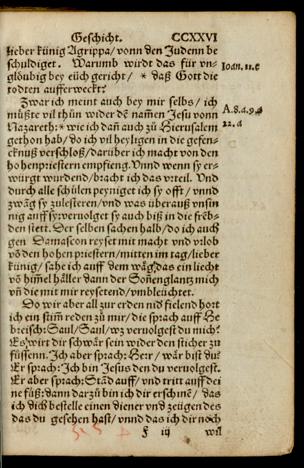 Geschicht. CCXXVI
lieber künig Agrippa/vonn den Judenn be
schuldiget. Warumb wirdt das für vn-
glöubig bey eüch gericht/ * daß Gott die
Joan. 11.c
todten aufferweckt?
Zwar ich meint auch bey mir selbs/ ich
müßte vil thůn wider dē nam̄en Jesu vonn
A.8.a.9.a
Nazareth: * wie ich dañ auch zů Hierusalem
22.a
gethon hab/ do ich vil heyligen in die gefen-
cknuß verschloß/ darüber ich macht von den
hohenpriestern empfieng. Vnnd wenn sy er-
würgt wurdend/bracht ich das vrteil. Vnd
durch alle schůlen peyniget ich sy offt/ vnnd
zwāg sy zulesteren/vnd was überauß vnsin
nig auff sy: veruolget sy auch biß in die frēb-
den stett. Der selben sachen halb/do ich auch
gen Damascon reyset mit macht vnd vrlob
vō den hohen priestern/mitten im tag/lieber
künig/ sahe ich auff dem wäg/das ein liecht
vō him̄el häller dann der Soñenglantz mich
vñ die mit mir reysetend/vmbleüchtet.
Do wir aber all zur erden nid fielend hort
ich ein stim̄ reden zů mir/die sprach auff He
breisch: Saul/Saul/wz veruolgest du mich?
Es wirt dir schwär sein wider den sticher zu
füssenn. Ich aber sprach: Herr/ wär bist du?
Er sprach: Ich bin Jesus den du veruolgest.
Er aber sprach: Stād auff/vnd tritt auff dei
ne füß: dann darzů bin ich dir erschinē/ das
ich dich bestelle einen diener vnd zeügen des
das du gesehen hast/ vnnd das ich dir noch
f iij wil